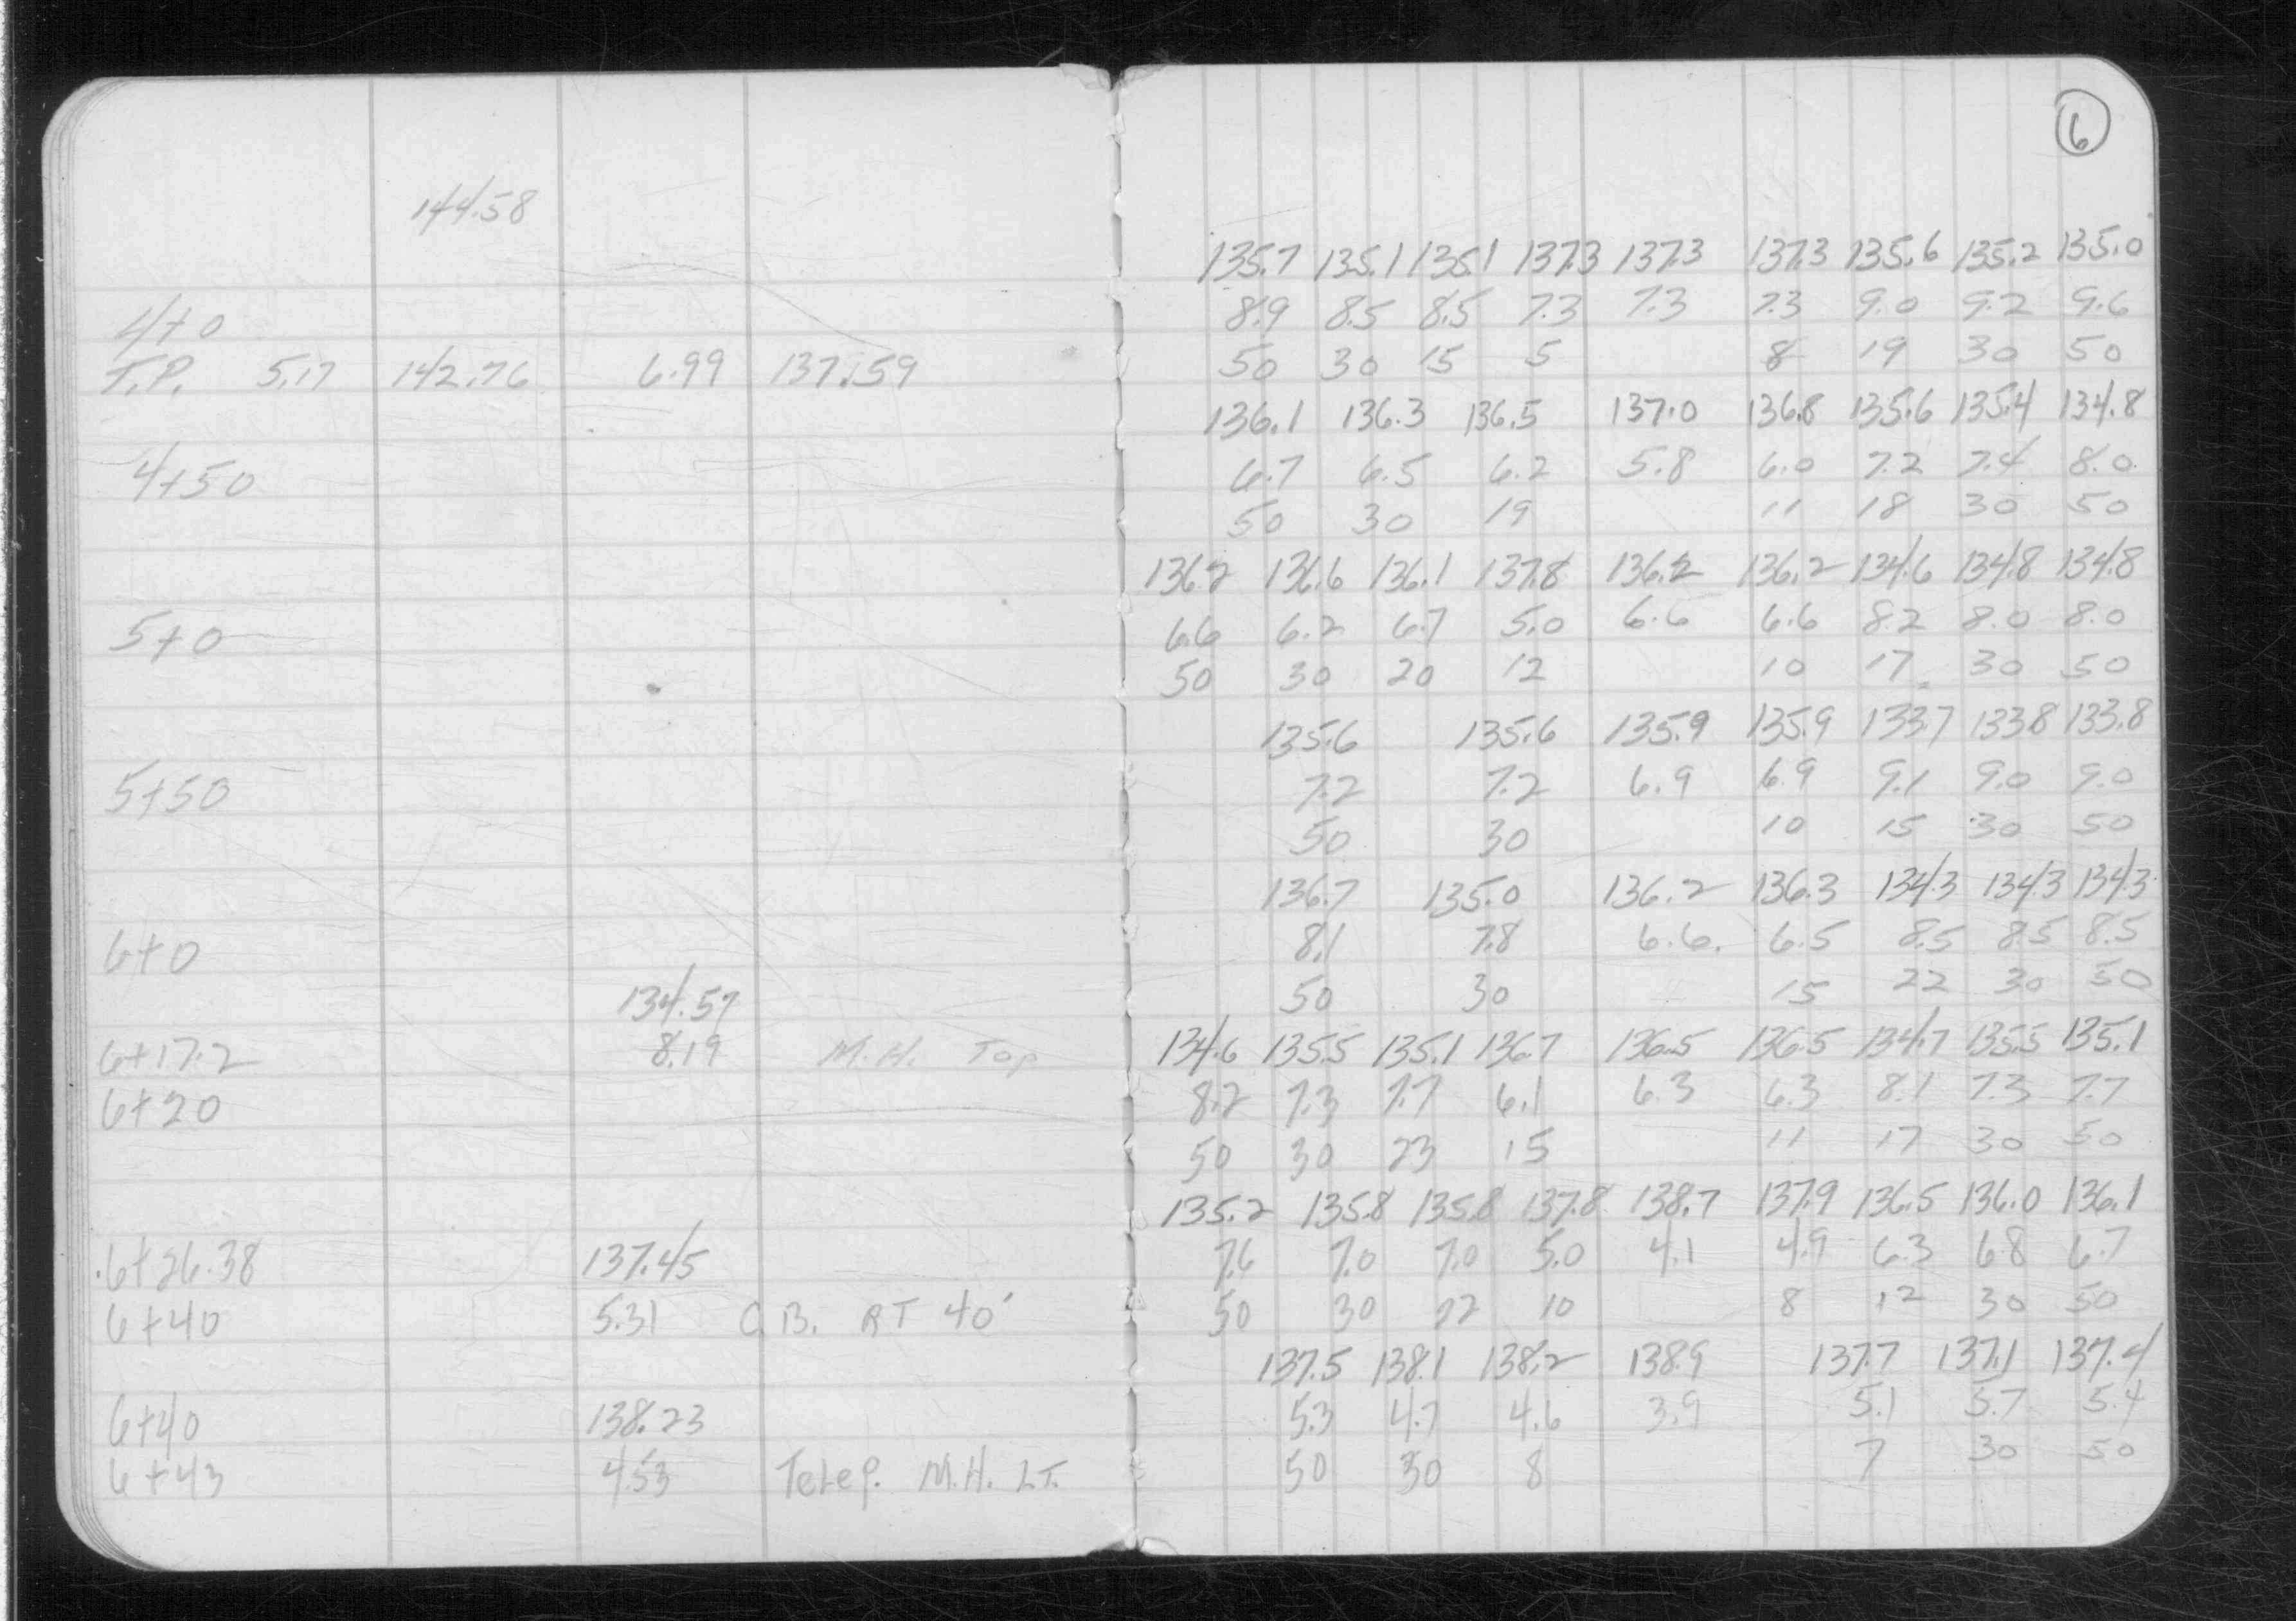 6
144.58
135.7 135.1 135.1 137.3 137.3 137.3 135.6 135.2 135.0
4+0 8.9 8.5 8.5 7.3 7.3 7.3 9.0 9.2 9.6
T.P. 5.17 142.76 6.99 137.59 50 30 15 5 8 19 30 50
136.1 136.3 136.5 137.0 136.8 135.6 135.4 134.8
4+50 6.7 6.5 6.2 5.8 6.0 7.2 7.4 8.0
50 30 19 11 18 30 50
136.2 136.6 136.1 137.8 136.2 136.2 134.6 134.8 134.8
5+0 6.6 6.2 6.7 5.0 6.6 6.6 8.2 8.0 8.0
50 30 20 12 10 17 30 50
135.6 135.6 135.9 135.9 133.7 133.8 133.8
5+50 7.2 7.2 6.9 6.9 9.1 9.0 9.0
50 30 10 15 30 50
136.7 135.0 136.2 136.3 134.3 134.3 134.3
6+0 8.1 7.8 6.6 6.5 8.5 8.5 8.5
134.57 50 30 15 22 30 50
6+17.2 8.19 M.H. Top 134.6 135.5 135.1 136.7 136.5 136.5 134.7 135.5 135.1
6+20 8.2 7.3 7.7 6.1 6.3 6.3 8.1 7.3 7.7
50 30 23 15 11 17 30 50
135.2 135.8 135.8 137.8 138.7 137.9 136.5 136.0 136.1
6+26.38 137.45 7.6 7.0 7.0 5.0 4.1 4.9 6.3 6.8 6.7
6+40 5.31 C.B. RT 40' 50 30 22 10 8 12 30 50
137.5 138.1 138.2 138.9 137.7 137.1 137.4
6+40 138.23 5.3 4.7 4.6 3.9 5.1 5.7 5.4
6+43 4.53 Telep. M.H. LT. 50 30 8 7 30 50